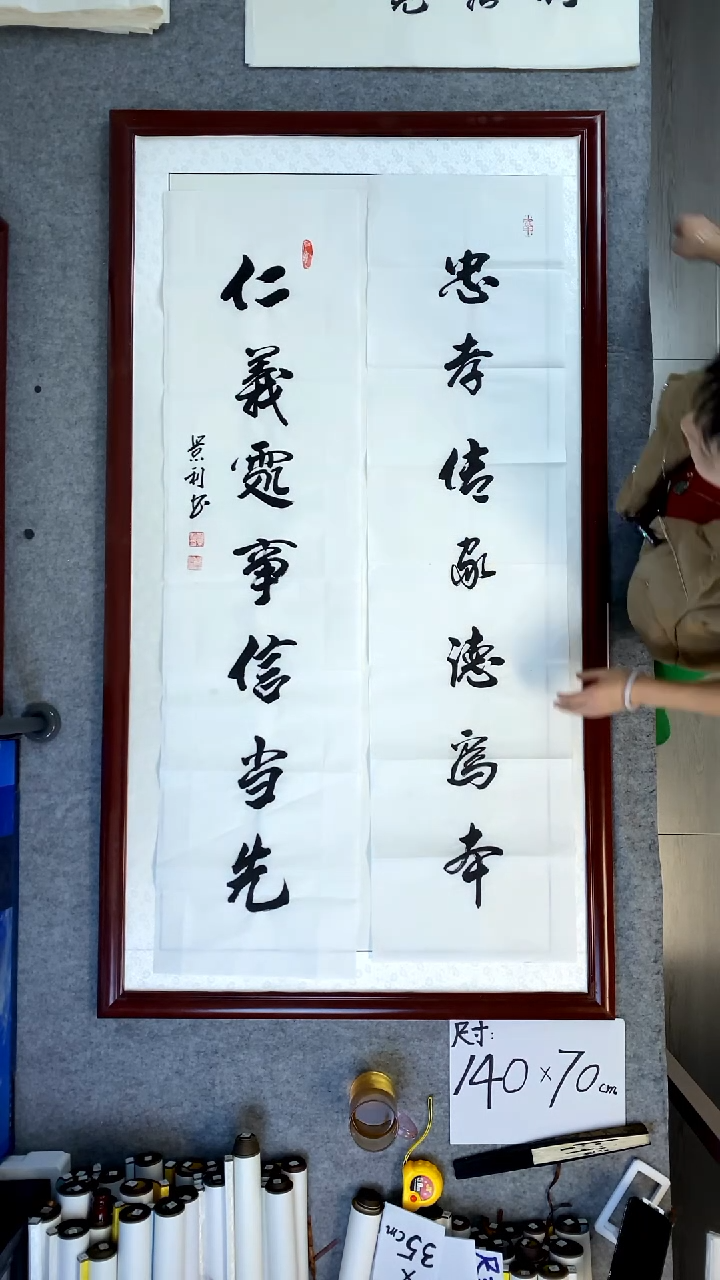 忠孝传家德为本
仁義處事信当先
景利书
尺寸:
140×70cm
35cm
×
尺